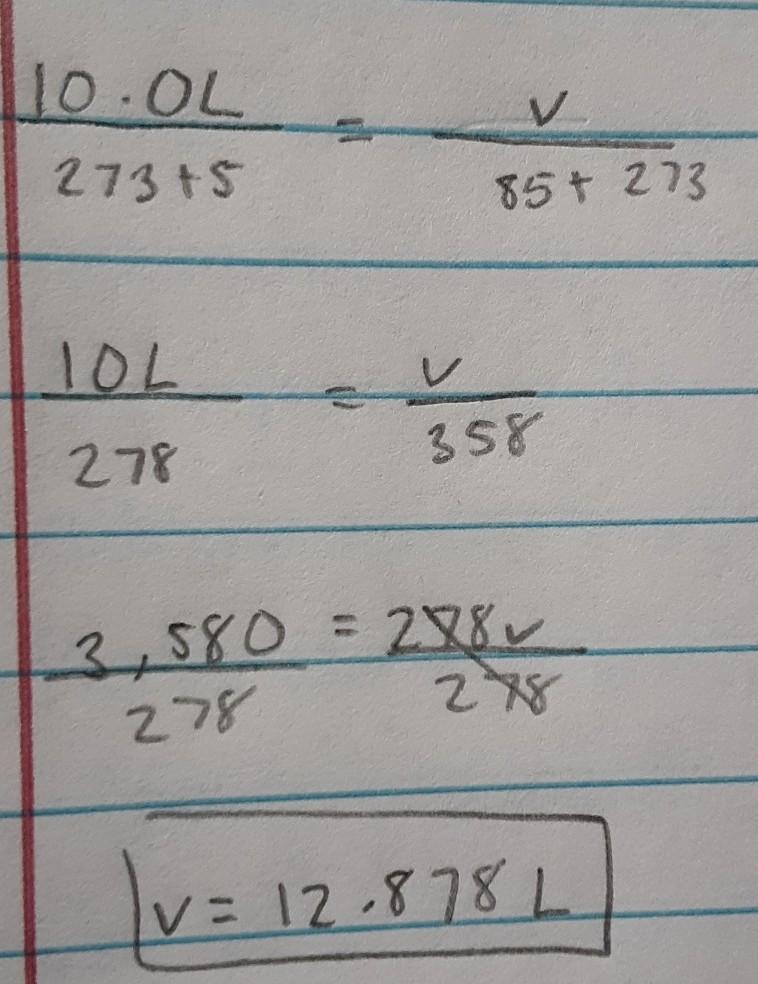 10.0L = V
273+5 85+ 273
10L = V
278 358
3,580 = 278V
278 278
V= 12.878 L